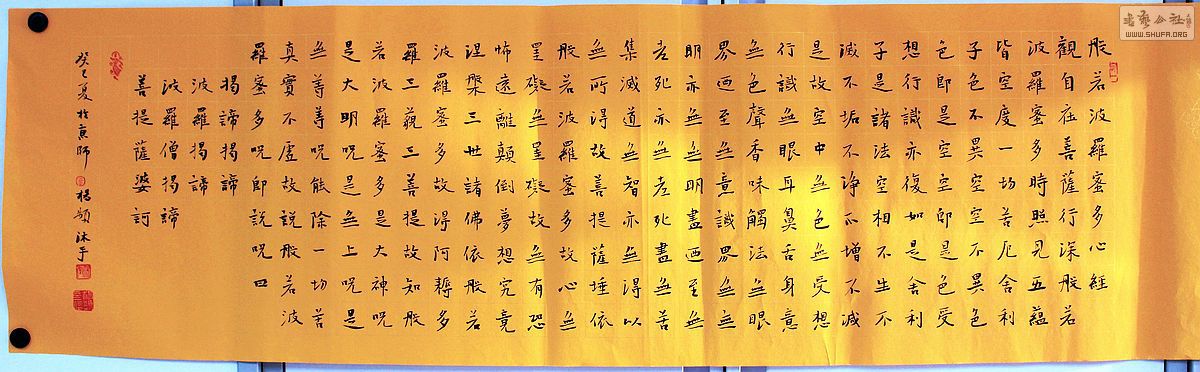 般若波羅蜜多心經
觀自在菩薩行深般若
波羅蜜多時照見五蘊
皆空度一切苦厄舍利
子色不異空空不異色
色即是空空即是色受
想行識亦復如是舍利
子是諸法空相不生不
滅不垢不淨不增不減
是故空中無色無受想
行識無眼耳鼻舌身意
無色聲香味觸法無眼
界迺至無意識界無無
明亦無無明盡迺至無
老死亦無老死盡無苦
集滅道無智亦無得以
無所得故菩提薩埵依
般若波羅蜜多故心無
罣礙無罣礙故無有恐
怖遠離顛倒夢想究竟
涅槃三世諸佛依般若
波羅蜜多故得阿耨多
羅三藐三菩提故知般
若波羅蜜多是大神呪
是大明呪是無上呪是
無等等呪能除一切苦
真實不虛故說般若波
羅蜜多呪即說呪曰
揭諦揭諦
波羅揭諦
波羅僧揭諦
菩提薩婆訶
癸巳夏於京師 楊 沐手
書藝公社
WWW.SHUFA.ORG